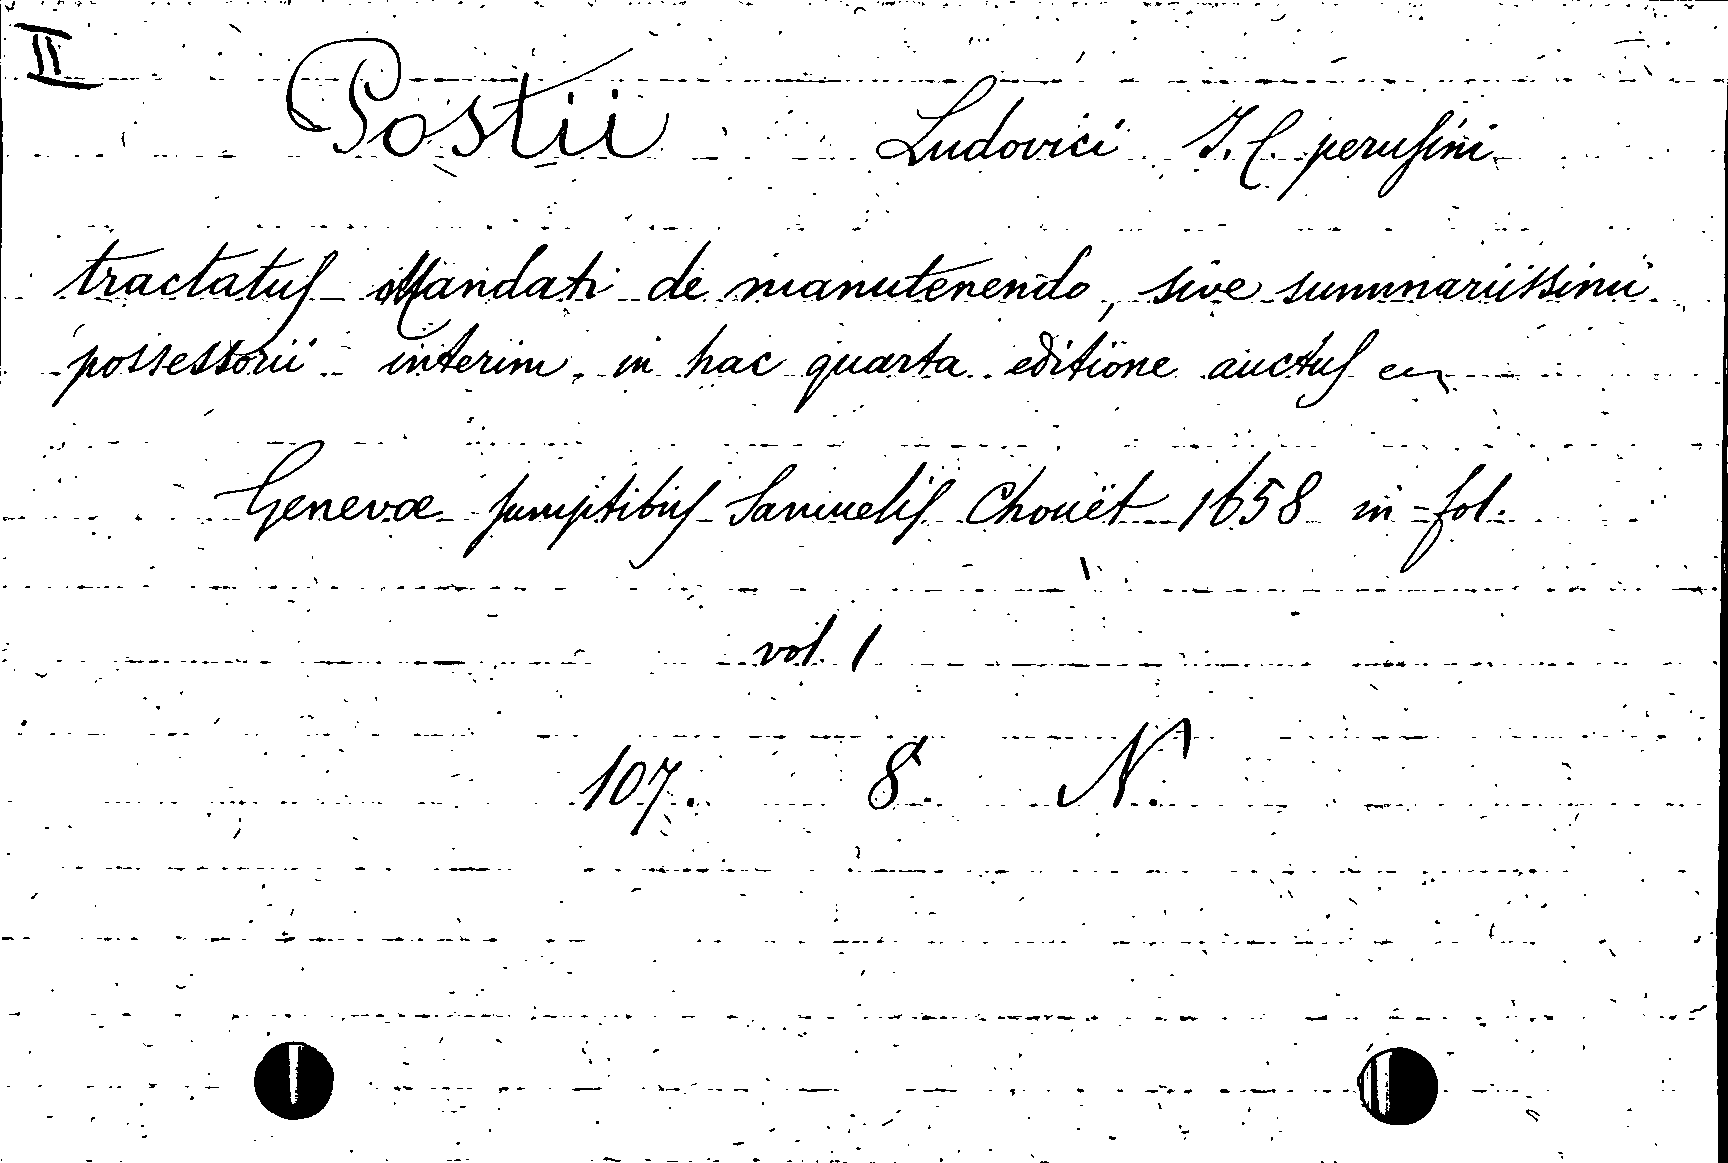 II
Postii Ludovici J. C. perusini
tractatus Mandati de manutenendo, sive summariissimi
possessorii interim in hac quarta editione auctus
Genevæ sumptibus Samuelis Chouët 1658 in-fol.
vol. 1
107. 8. N.